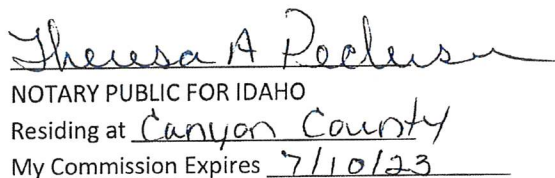 Theresa A
NOTARY PUBLIC FOR IDAHO
Residing at Canyon County
My Commission Expires 7/10/23